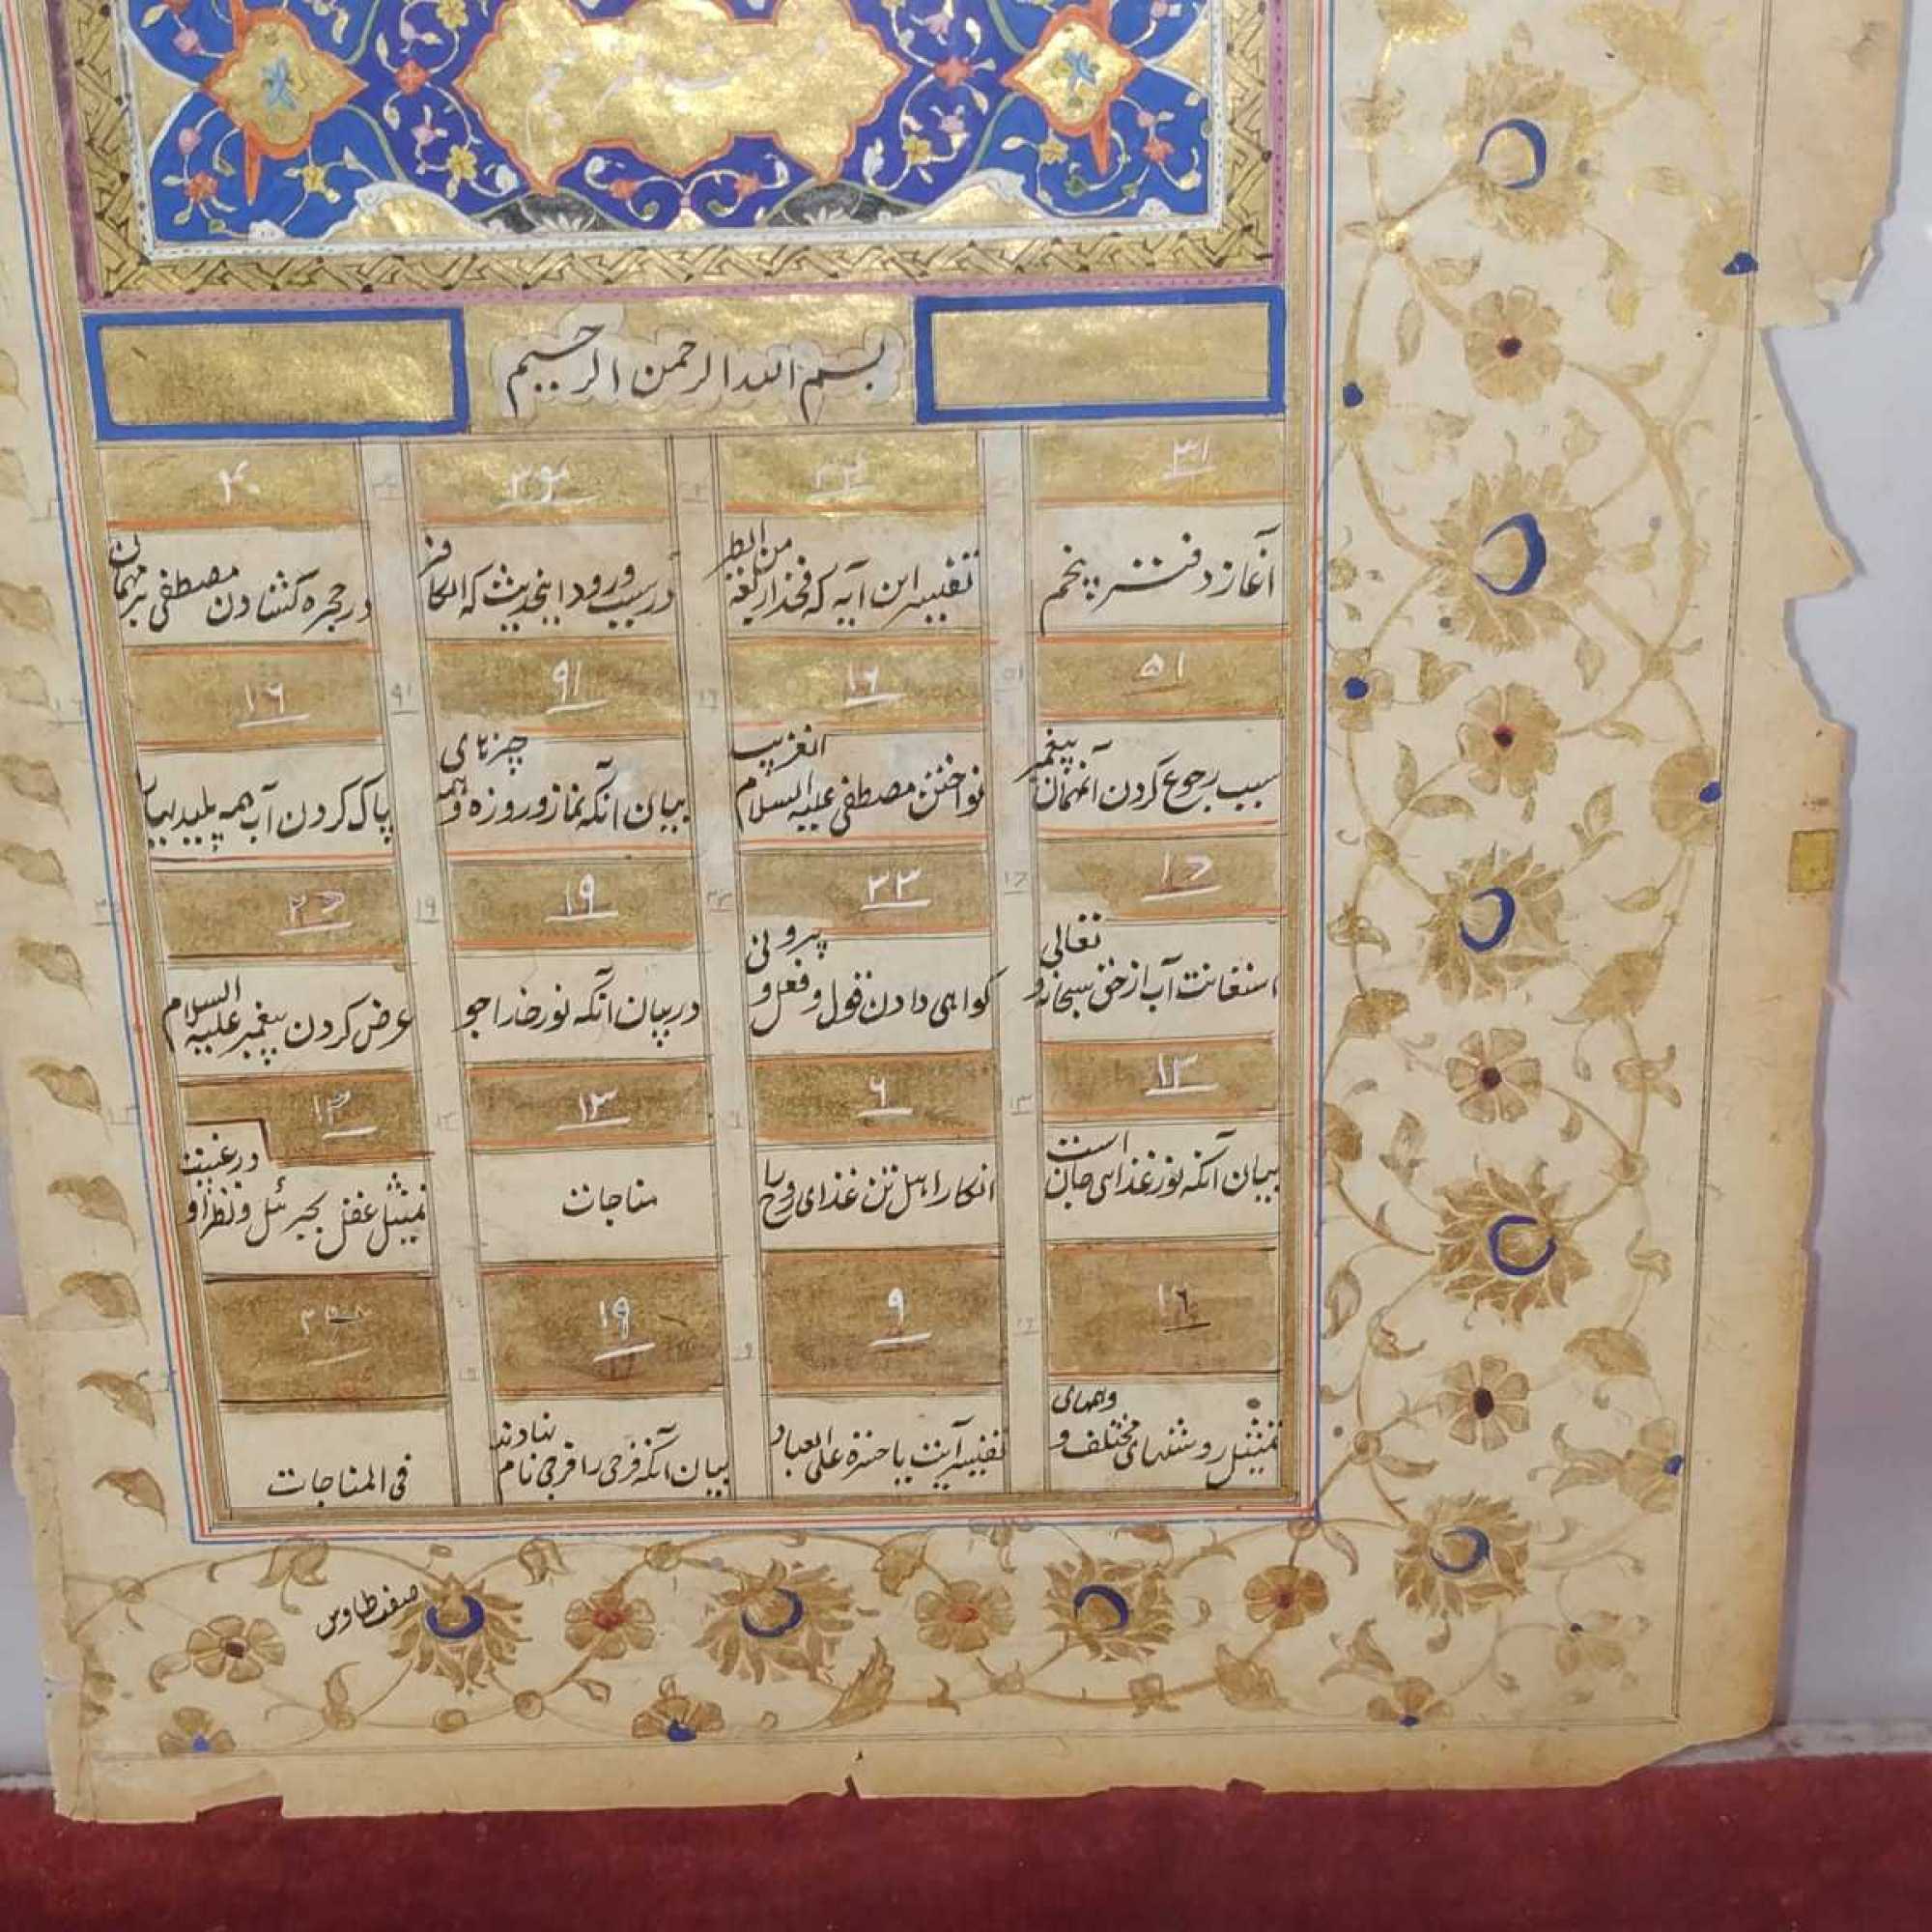 بسم الله الرحمن الرحیم
۳۱
۳۶
۴۰
آغاز دفتر پنجم
تفسیر این آیه که فخذ اربعة من الطیر
در سبب ورود اینحدیث که الکافر
در حجره گشادن مصطفی بر مهمان
۵۱
۱۶
۹۱
۱۶
سبب رجوع کردن آن مهمان پیغمبر
نواختن مصطفی علیه السلام
بیان آنکه نماز و روزه و همه چیزهای
پاک کردن آب همه پلیدیها
۳۳
۱۹
استعانت آب از حق سبحانه و تعالی
گواهی دادن قول و فعل و بیرونی
در بیان آنکه نور خدا جو
عرض کردن پیغمبر علیه السلام
۱۳
۶
۱۳
۱۳
بیان آنکه نور غذای جان است
انکار اهل تن غذای روح را
مناجات
تمثیل عقل بجبرئیل و نظر او
۱۶
۹
۱۹
تمثیل روشهای مختلف و
تفسیر آیت یا حسرة علی العباد
بیان آنکه فرجی را فرجی نام نهادند
فی المناجات
صفت طاوس